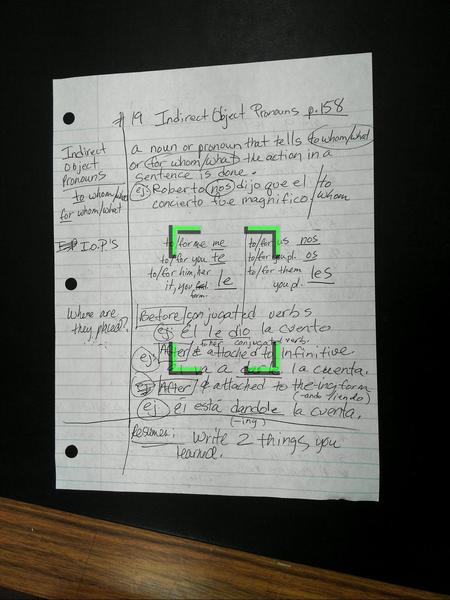 #19 Indirect Object Pronouns p.158
Indirect
Object
Pronouns
to whom/what
for whom/what
a noun or pronoun that tells to whom/what
or for whom/what the action in a
sentence is done.
ej: Roberto nos dijo que el
concierto fue magnifico.
to
whom
I.O.P.'s
to/for me me
to/for you te
to/for him, her
it, you
form.
le
to/for us nos
to/for you pl. os
to/for them
you pl. les
Where are
they placed?
Before conjugated verbs
ej: él le dio la cuento
After & attached to infinitive
ej:
a la cuenta.
After & attached to the -ing form
(-ando -iendo)
ej él está dandole la cuenta.
(-ing)
Resumen: Write 2 things you
learned.